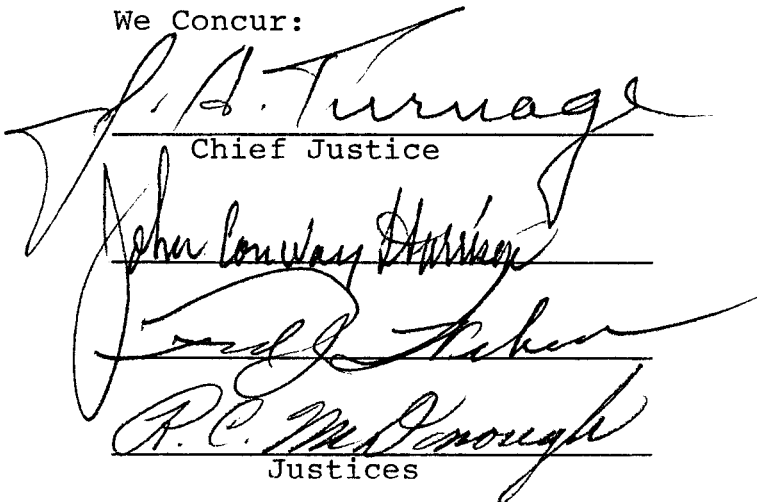 We Concur:
J. A. Turnage
Chief Justice
John Conway Harrison
Fred J. Weber
R. C. McDonough
Justices